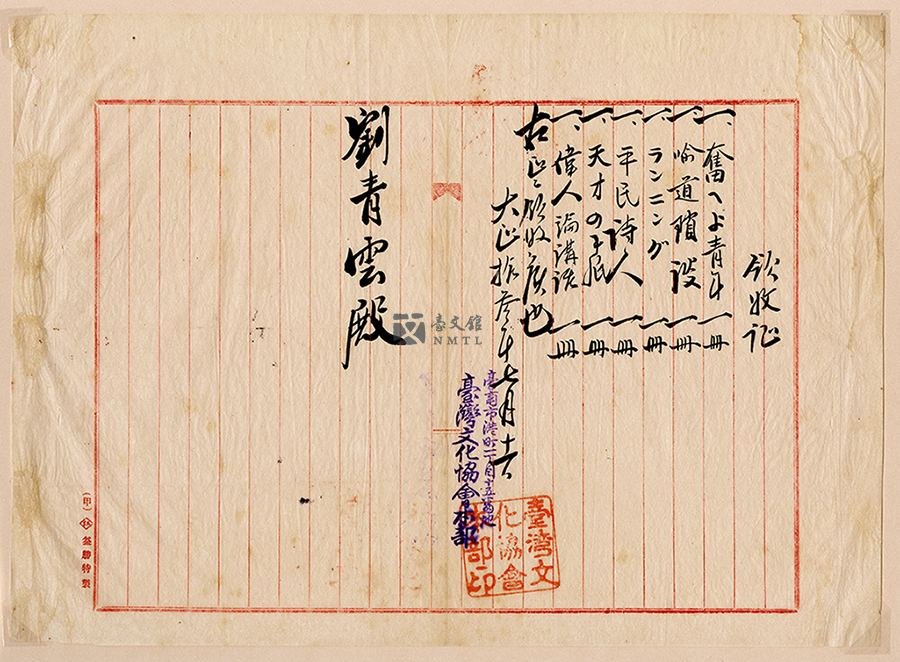 領收証
一、奮へよ青年 一冊
一、喻道瑣談 一冊
一、ランニング 一冊
一、平民詩人 一冊
一、天才の手紙 一冊
一、偉人論講話 一冊
右正ニ領收候也
大正拾參年七月十六
臺南市港町二丁目十五番地
臺灣文化協會本部
臺灣文化協會本部印
劉青雲殿
臺文館
NMTL
(甲)
特製